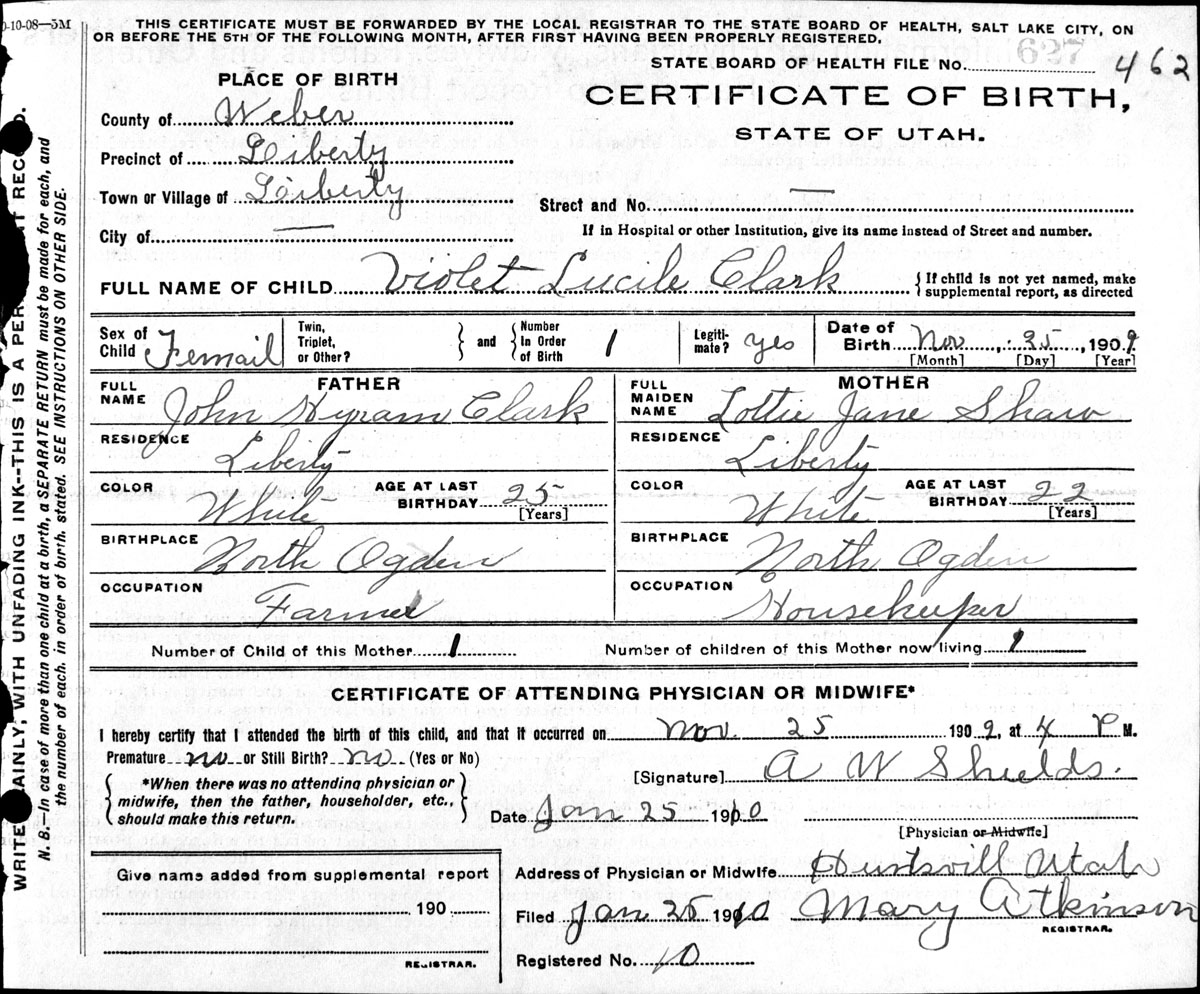 0-10-08—5M
THIS CERTIFICATE MUST BE FORWARDED BY THE LOCAL REGISTRAR TO THE STATE BOARD OF HEALTH, SALT LAKE CITY, ON
OR BEFORE THE 5TH OF THE FOLLOWING MONTH, AFTER FIRST HAVING BEEN PROPERLY REGISTERED.
STATE BOARD OF HEALTH FILE NO. 462
PLACE OF BIRTH
CERTIFICATE OF BIRTH,
STATE OF UTAH.
County of Weber
Precinct of Liberty
Town or Village of Liberty
Street and No. —
City of —
If in Hospital or other Institution, give its name instead of Street and number.
FULL NAME OF CHILD Violet Lucile Clark { If child is not yet named, make
supplemental report, as directed
Sex of Child Femail
Twin, Triplet, or Other? } and { Number In Order of Birth 1
Legiti-mate? yes
Date of Birth Nov 25, 1909
[Month] [Day] [Year]
FATHER
FULL NAME John Hyram Clark
RESIDENCE Liberty
COLOR White
AGE AT LAST BIRTHDAY 25
[Years]
BIRTHPLACE North Ogden
OCCUPATION Farmer
MOTHER
FULL MAIDEN NAME Lottie Jane Shaw
RESIDENCE Liberty
COLOR White
AGE AT LAST BIRTHDAY 22
[Years]
BIRTHPLACE North Ogden
OCCUPATION Housekeeper
Number of Child of this Mother 1
Number of children of this Mother now living 1
CERTIFICATE OF ATTENDING PHYSICIAN OR MIDWIFE*
I hereby certify that I attended the birth of this child, and that it occurred on Nov. 25 1909, at 4 P M.
Premature no or Still Birth? no (Yes or No)
{ *When there was no attending physician or
midwife, then the father, householder, etc.,
should make this return. }
[Signature] A W Shields.
Date Jan 25 1910
[Physician or Midwife]
Give name added from supplemental report
190
REGISTRAR.
Address of Physician or Midwife Huntsvill Utah
Filed Jan 25 1910 Mary Atkinson
REGISTRAR.
Registered No. 10
WRITE PLAINLY, WITH UNFADING INK--THIS IS A PERMANENT RECORD.
N. B.—In case of more than one child at a birth, a SEPARATE RETURN must be made for each, and
the number of each, in order of birth, stated. SEE INSTRUCTIONS ON OTHER SIDE.